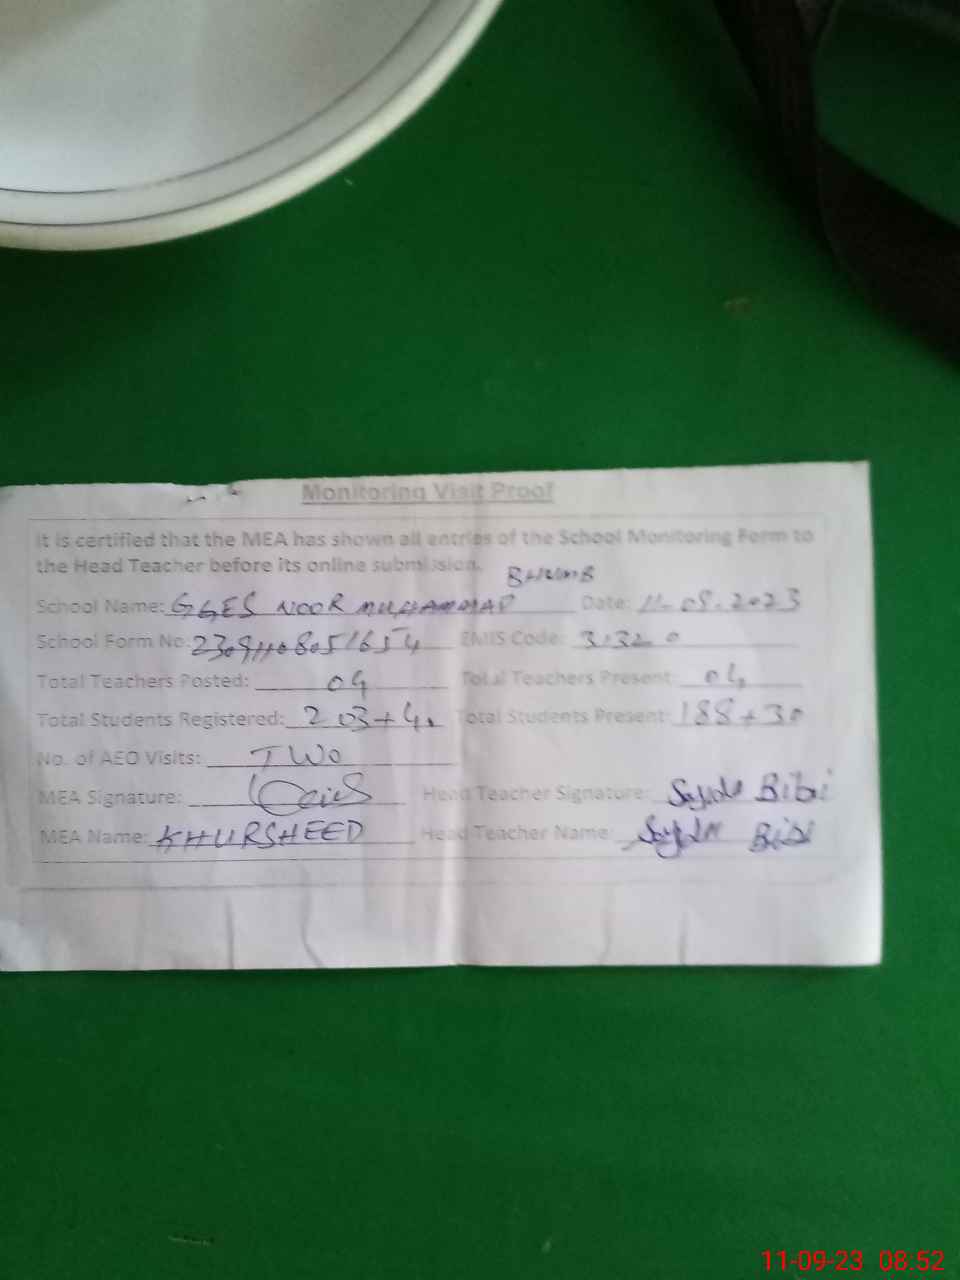 Monitoring Visit Proof
It is certified that the MEA has shown all entries of the School Monitoring Form to
the Head Teacher before its online submission.
School Name: GGES NOOR MUHAMMAD BHUMB Date: 11.09.2023
School Form No: EMIS Code:
Total Teachers Posted: 04 Total Teachers Present: 04
Total Students Registered: 203+40 Total Students Present: 188+30
No. of AEO Visits: TWO
MEA Signature: Head Teacher Signature: Bibi
MEA Name: KHURSHEED Head Teacher Name: Bibi
11-09-23 08.52